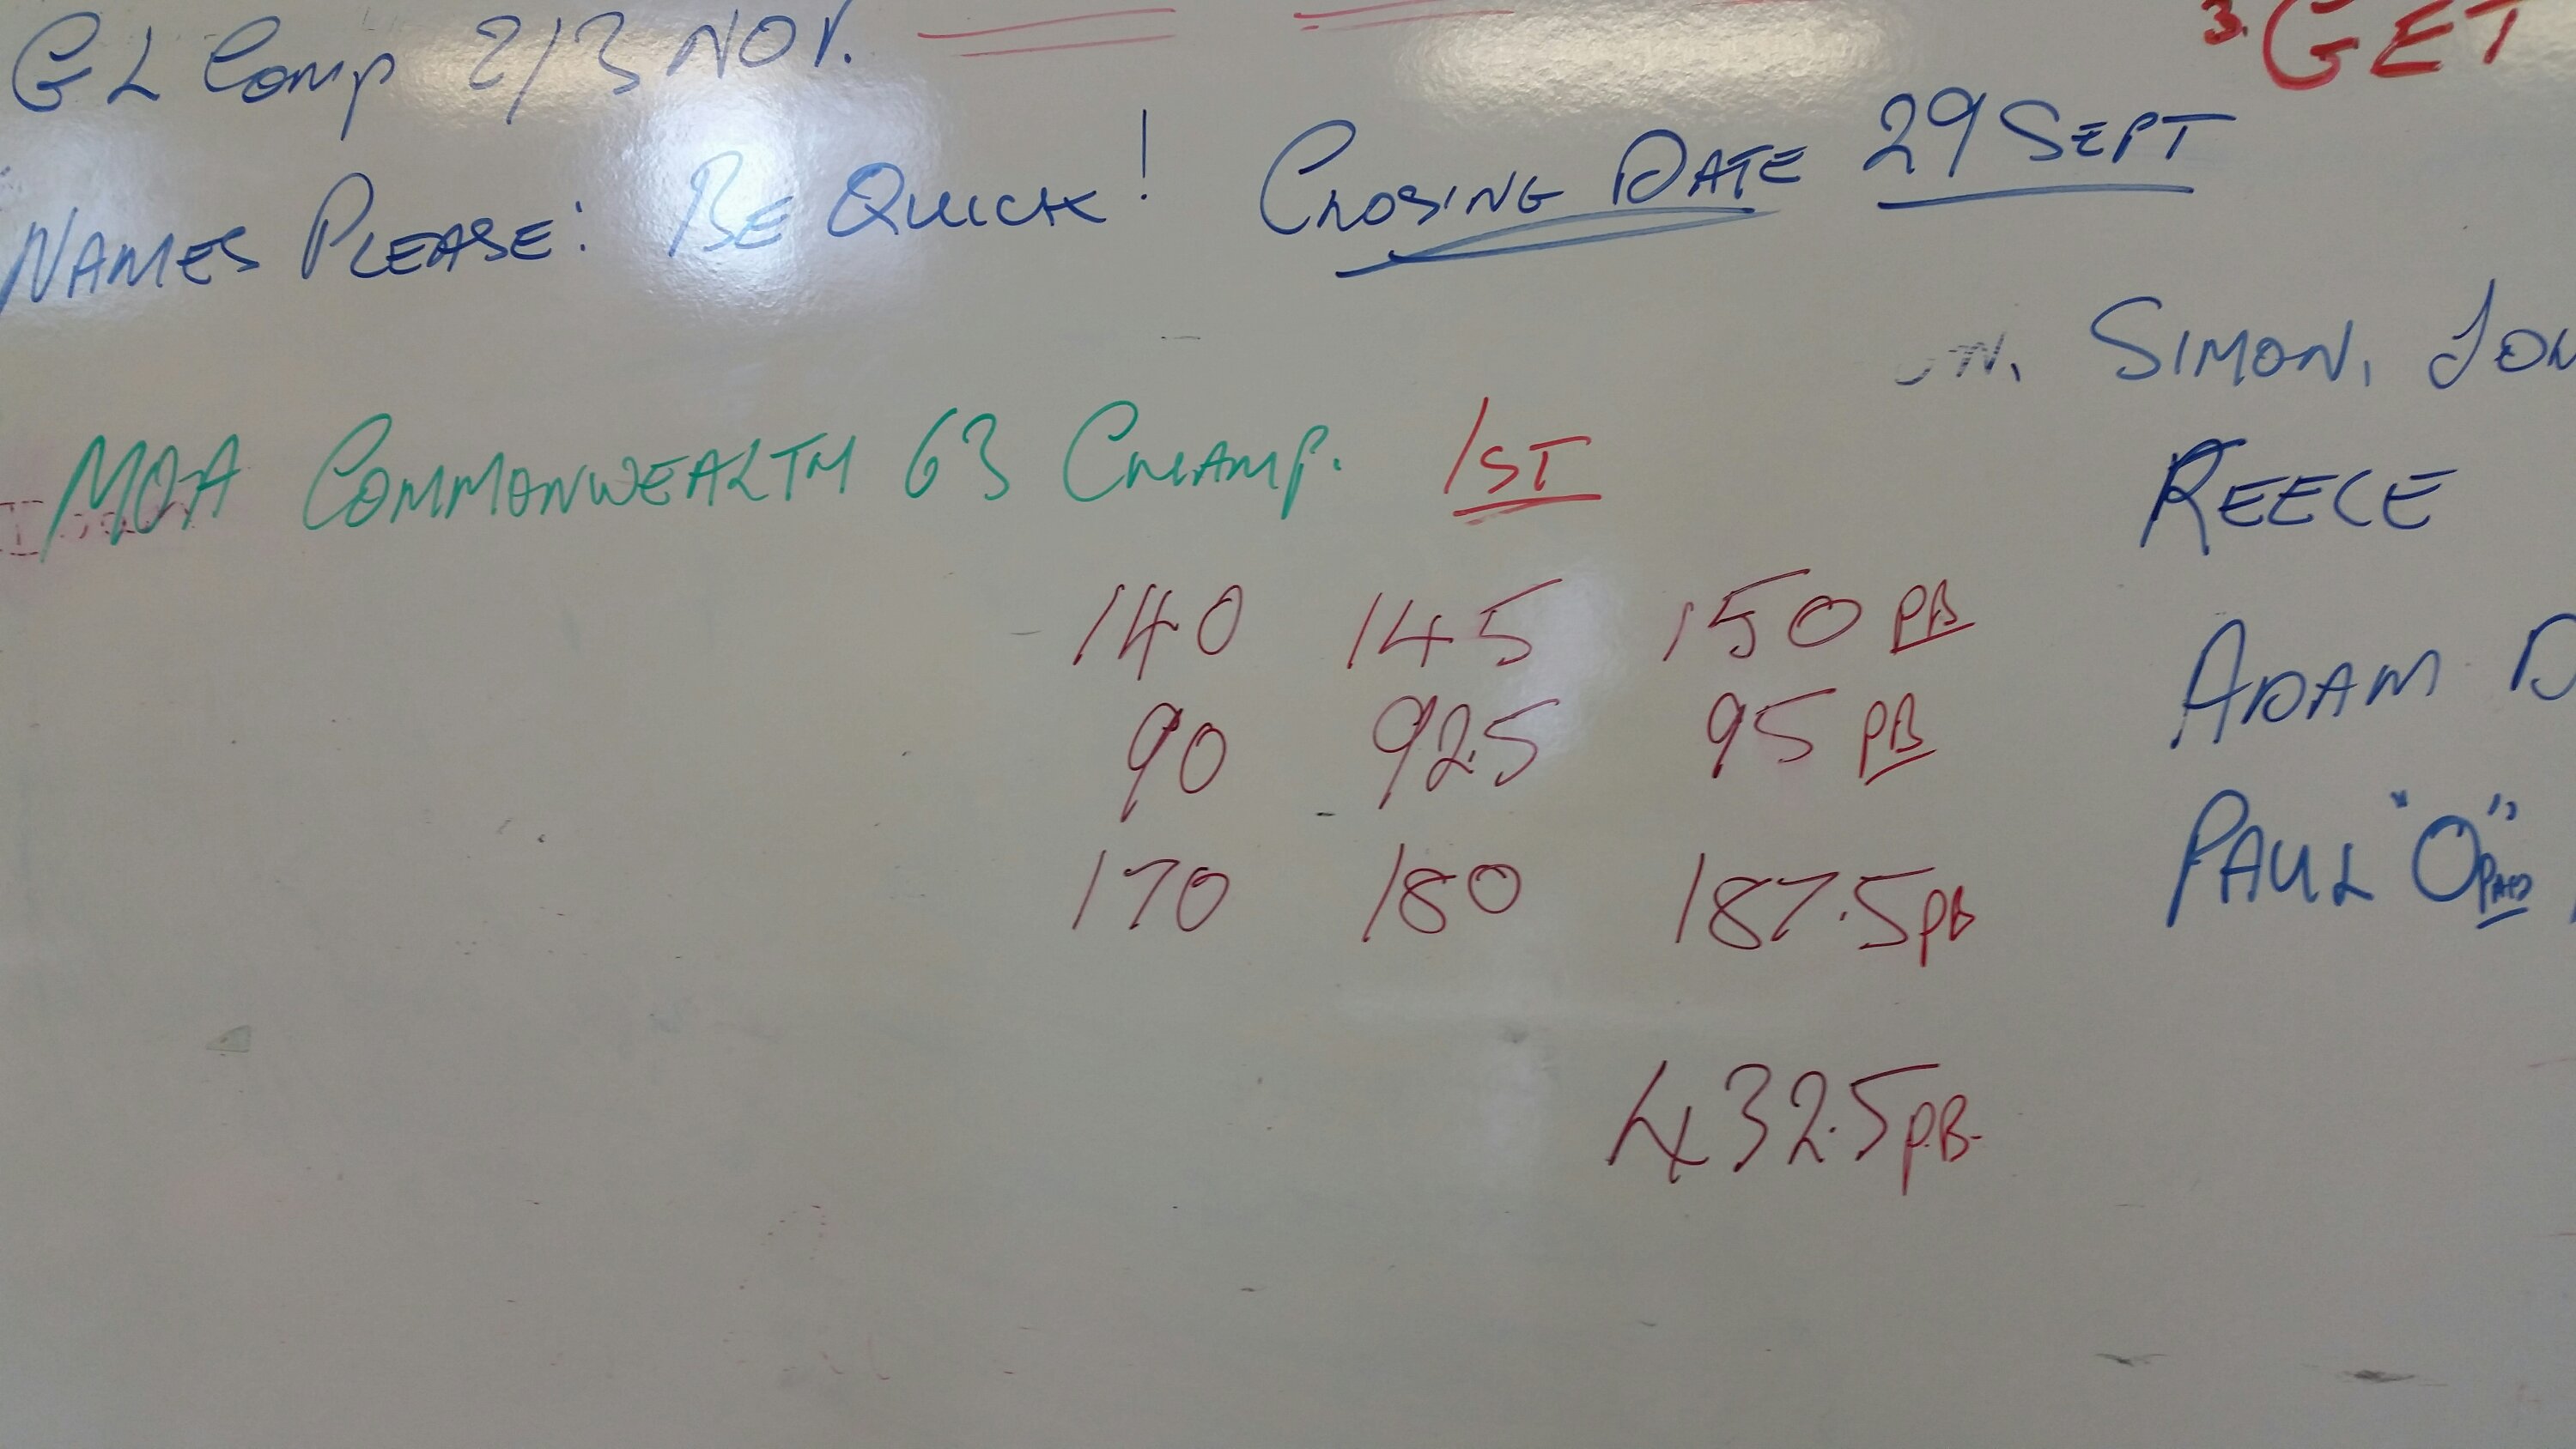 GL Comp 2/3 NOV.
3. GET
NAMES PLEASE: BE QUICK! CLOSING DATE 29 SEPT
SIMON,
MOA COMMONWEALTH 63 CHAMP. 1ST
REECE
140 145 150 PB
ADAM D
90 92.5 95 PB
PAUL "O" PAID
170 180 187.5 PB
432.5 P.B.